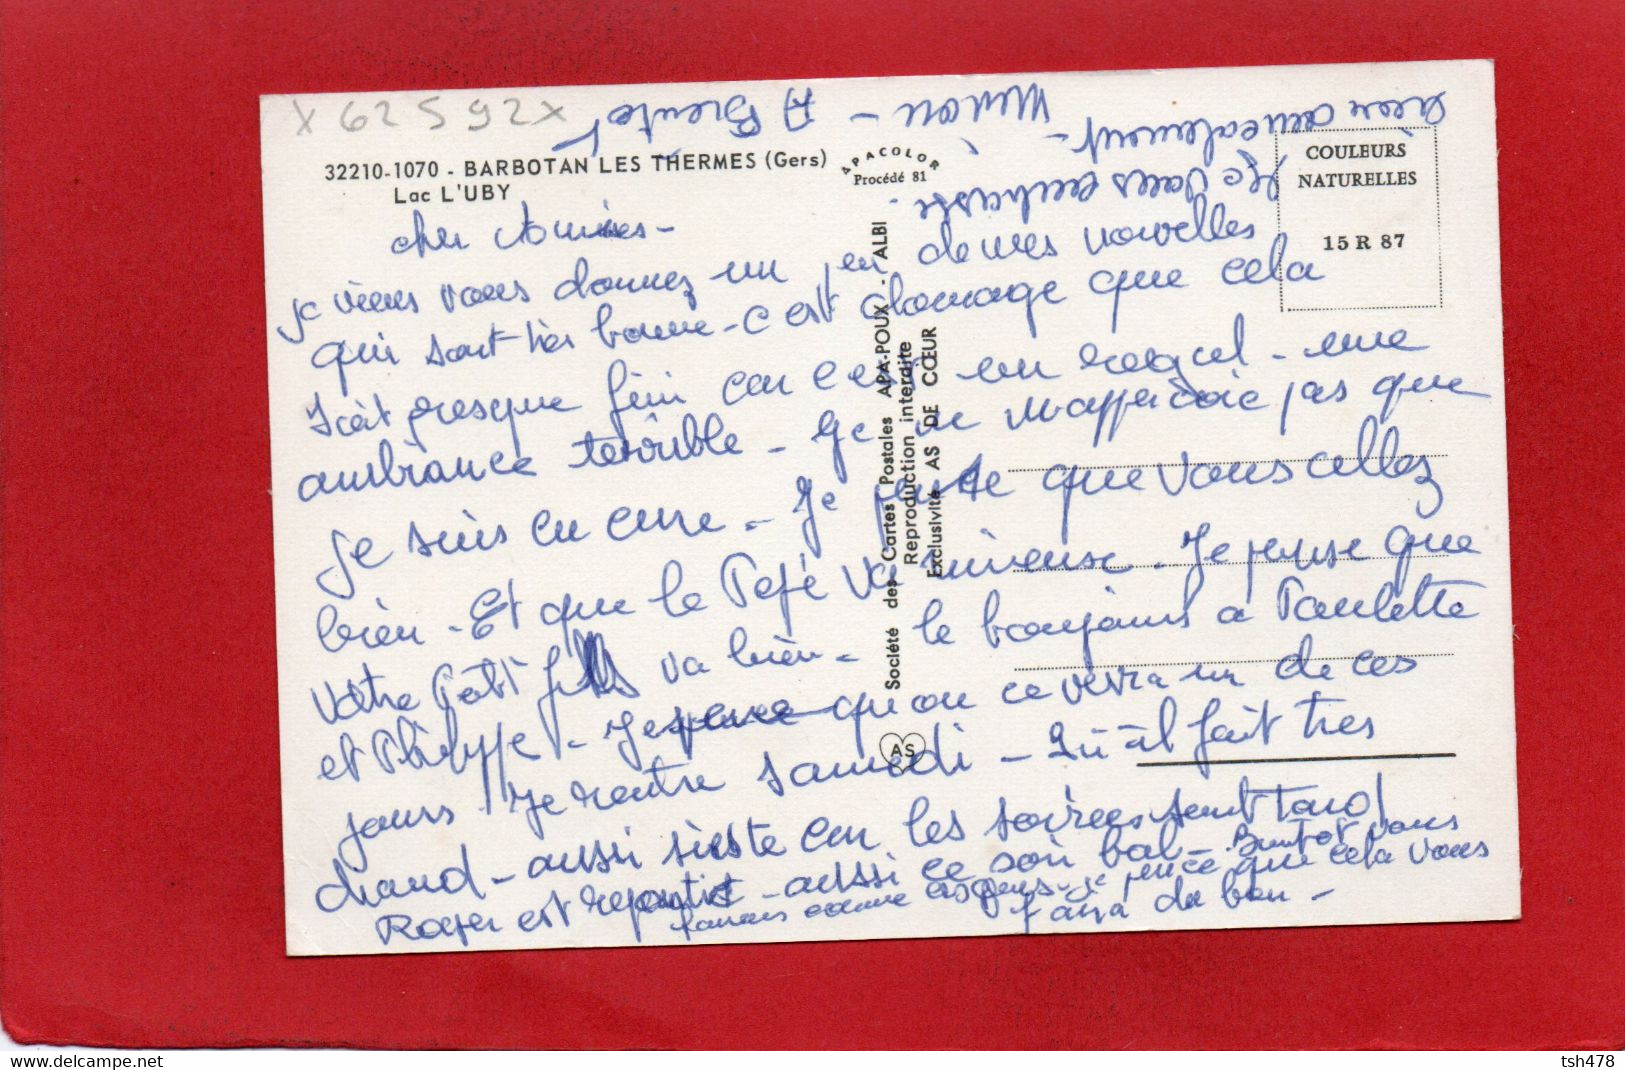 X 62 5 92 X
32210-1070 - BARBOTAN LES THERMES (Gers)
Lac L'UBY
APACOLOR
Procédé 81
COULEURS
NATURELLES
15 R 87
Société des Cartes Postales APA-POUX - ALBI
Reproduction interdite
Exclusivité AS DE CŒUR
AS
cher Amies -
je viens vous donnez un peu de mes nouvelles
qui sont très bonne - c est domage que cela
soit presque fini car c est en - une
ambiance terrible - je ne m'apperçoie pas que
je suis en cure - Je pense que vous allez
bien - Et que le Pepé va mieux - Je pense que
votre Petit fils va bien - le bonjours a Paulette
et Philippe - Je pense qu on ce verra un de ces
jours Je rentre samedi - il fait tres
chaud - aussi sieste car les soirées sont tard
Roger est repartit - aussi ce soir bal - vous
comme - je pence que cela vous
faira du bien -
bien amicalement -
Je vous embrasse -
A Bientot
Weezee
Entend - tsh478